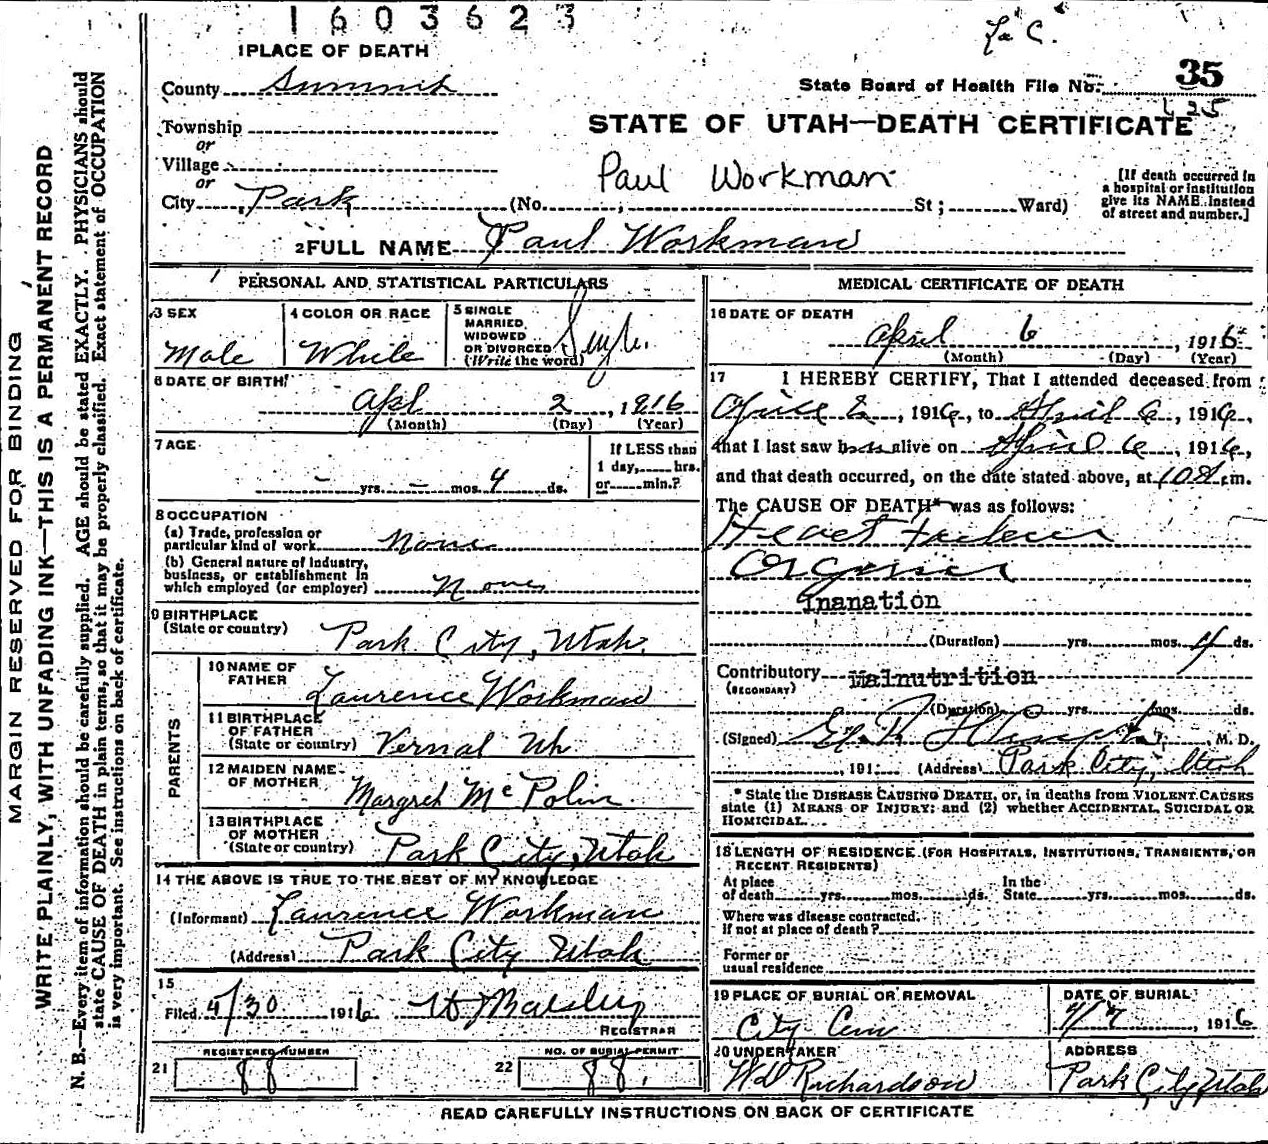 1603623
La C.
1 PLACE OF DEATH
County Summit
State Board of Health File No. 35
Township
or
STATE OF UTAH—DEATH CERTIFICATE
Village
or
Paul Workman
City Park (No. , St; Ward)
[If death occurred in
a hospital or institution
give its NAME instead
of street and number.]
2 FULL NAME Paul Workman
PERSONAL AND STATISTICAL PARTICULARS
3 SEX
Male
4 COLOR OR RACE
White
5 SINGLE
MARRIED
WIDOWED
OR DIVORCED
(Write the word)
Single
6 DATE OF BIRTH
Apl 2, 1916
(Month) (Day) (Year)
7 AGE
- yrs. - mos. 4 ds.
If LESS than
1 day, hrs.
or min.?
8 OCCUPATION
(a) Trade, profession or
particular kind of work None
(b) General nature of industry,
business, or establishment in
which employed (or employer) None
9 BIRTHPLACE
(State or country) Park City, Utah.
PARENTS
10 NAME OF
FATHER Laurence Workman
11 BIRTHPLACE
OF FATHER
(State or country) Vernal Uh
12 MAIDEN NAME
OF MOTHER Margret McPolin
13 BIRTHPLACE
OF MOTHER
(State or country) Park City, Utah
14 THE ABOVE IS TRUE TO THE BEST OF MY KNOWLEDGE
(Informant) Laurence Workman
(Address) Park City Utah
15
Filed 4/30 1916
REGISTRAR
21 REGISTERED NUMBER 88
22 NO. OF BURIAL PERMIT 88.
MEDICAL CERTIFICATE OF DEATH
16 DATE OF DEATH
April 6, 1916
(Month) (Day) (Year)
17 I HEREBY CERTIFY, That I attended deceased from
April 2, 1916, to April 6, 1916,
that I last saw him alive on April 6, 1916,
and that death occurred, on the date stated above, at m.
The CAUSE OF DEATH* was as follows:
Heart failure
Organic
Inanation
(Duration) yrs. mos. 4 ds.
Contributory Malnutrition
(SECONDARY)
(Duration) yrs. mos. ds.
(Signed) M. D.
, 191 (Address) Park City, Utah
* State the DISEASE CAUSING DEATH, or, in deaths from VIOLENT CAUSES
state (1) MEANS OF INJURY; and (2) whether ACCIDENTAL, SUICIDAL OR
HOMICIDAL.
18 LENGTH OF RESIDENCE (FOR HOSPITALS, INSTITUTIONS, TRANSIENTS, OR
RECENT RESIDENTS)
At place
of death yrs. mos. ds. In the
State yrs. mos. ds.
Where was disease contracted.
If not at place of death?
Former or
usual residence
19 PLACE OF BURIAL OR REMOVAL
City Cem
DATE OF BURIAL
4/7, 1916
20 UNDERTAKER
Wd Richardson
ADDRESS
Park City Utah
READ CAREFULLY INSTRUCTIONS ON BACK OF CERTIFICATE
MARGIN RESERVED FOR BINDING
WRITE PLAINLY, WITH UNFADING INK—THIS IS A PERMANENT RECORD
N. B.—Every item of information should be carefully supplied. AGE should be stated EXACTLY. PHYSICIANS should
state CAUSE OF DEATH in plain terms, so that it may be properly classified. Exact statement of OCCUPATION
is very important. See instructions on back of certificate.